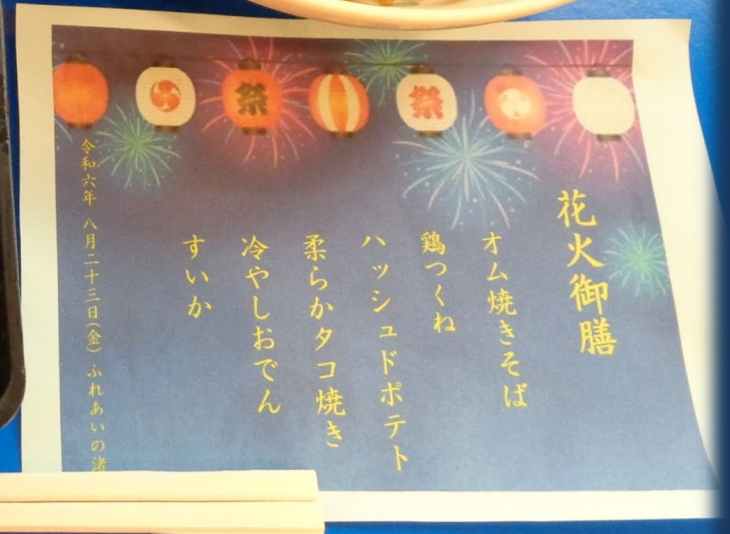 祭
祭
花火御膳
オム焼きそば
鶏つくね
ハッシュドポテト
柔らかタコ焼き
冷やしおでん
すいか
令和六年 八月二十三日(金) ふれあいの渚